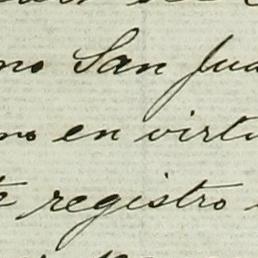 no San Jua
no en virtu
te registro